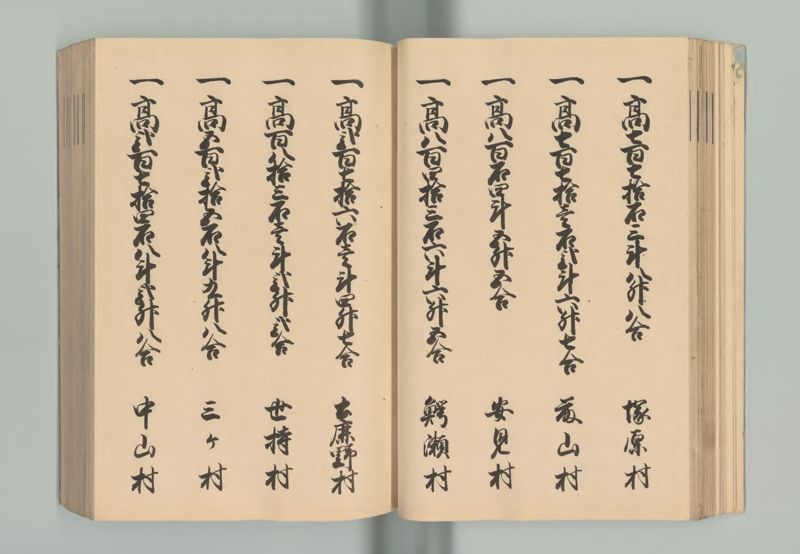 一高七百七拾石二斗八升八合 塚原村
一高七百七拾壱石弐斗六升七合 山村
一高八百石四斗五升五合 安見村
一高八百四拾三石六斗六升五合 鰐瀬村
一高弐百七拾六石壱斗四升七合 古廉野村
一高百八拾三石壱斗弐升弐合 世持村
一高五百弐拾五石八斗九升八合 三ケ村
一高弐百七拾四石八斗弐升八合 中山村